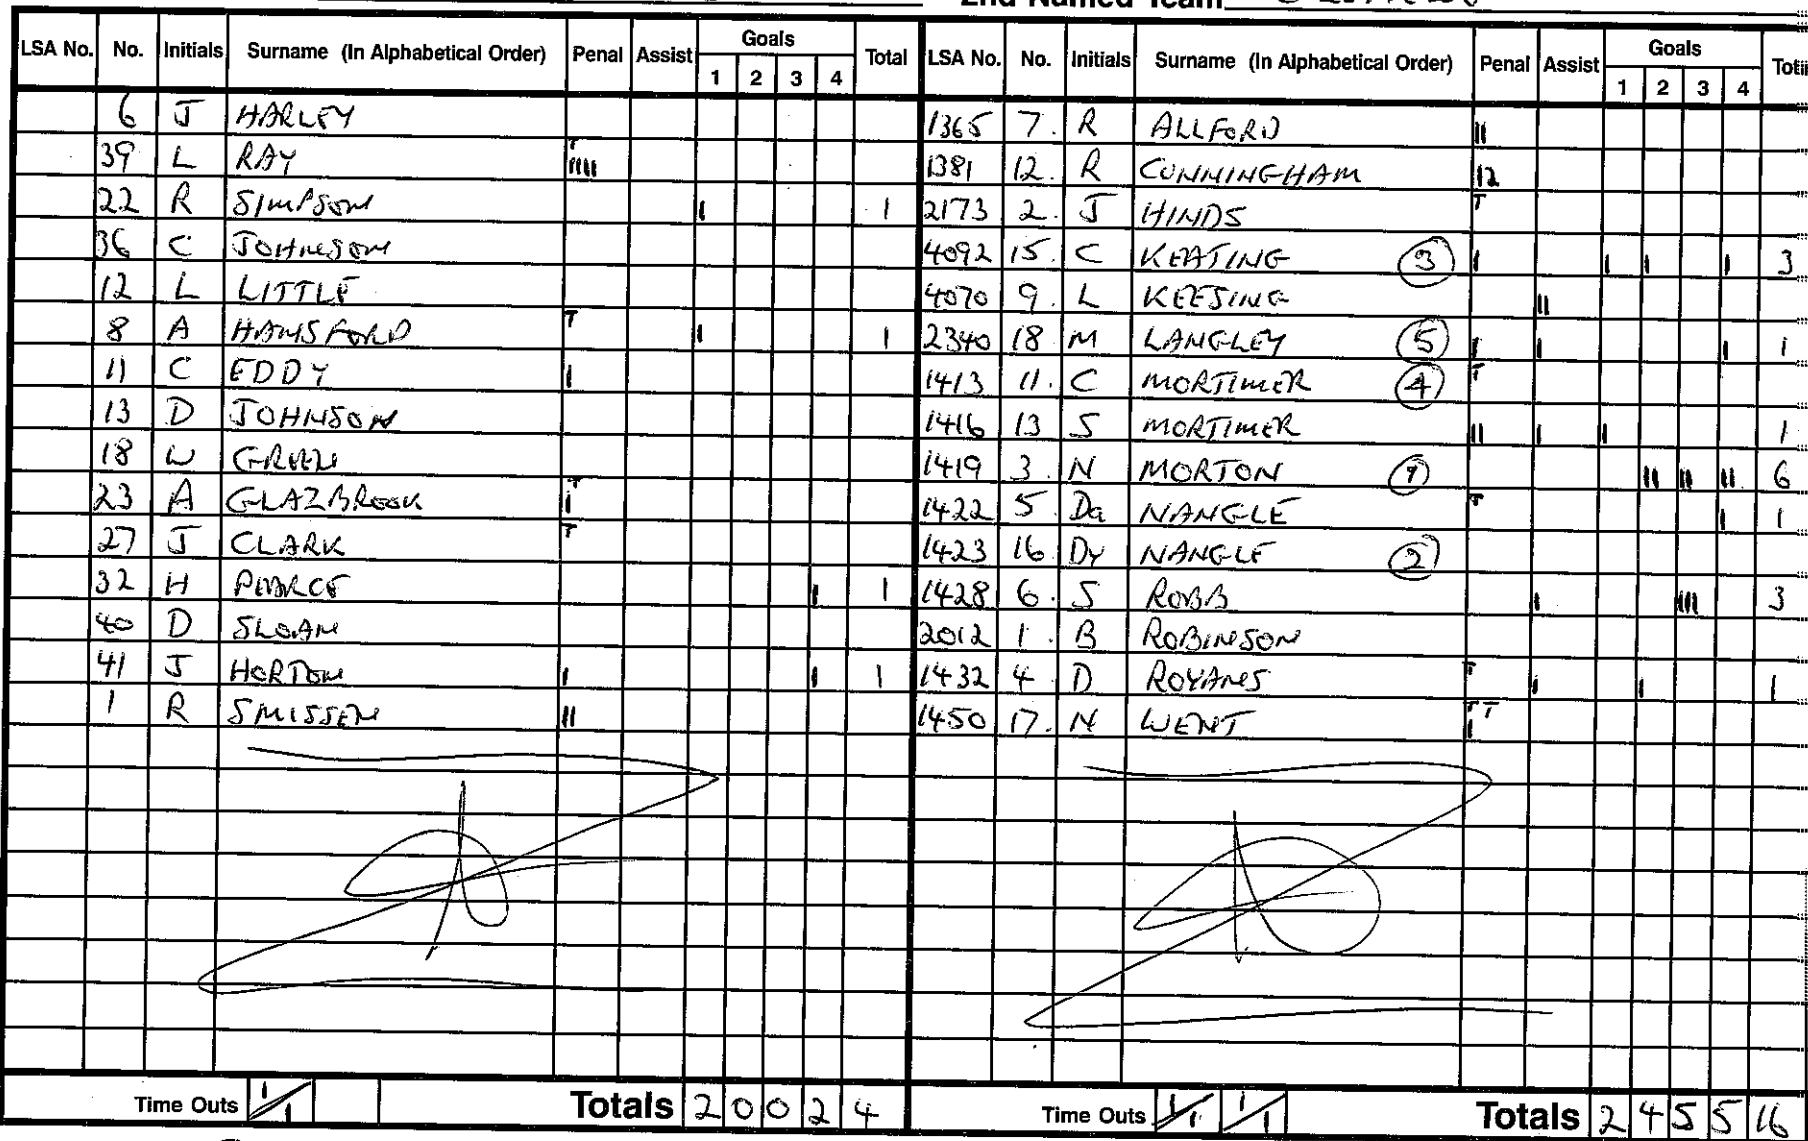 2nd Named Team
LSA No. No. Initials Surname (In Alphabetical Order) Penal Assist Goals 1 2 3 4 Total
6 J HARLEY
39 L RAY T IIII
22 R SIMPSON I 1
36 C JOHNSON
12 L LITTLE
8 A HANSFORD T I 1
11 C EDDY I
13 D JOHNSON
18 W GREEN
23 A GLAZBROOK T I
27 J CLARK T
32 H PEARCE I 1
40 D SLOAN
41 J HORTON I I 1
1 R SMISSEN II
Time Outs 1/1
Totals 2 0 0 2 4
LSA No. No. Initials Surname (In Alphabetical Order) Penal Assist Goals 1 2 3 4
1365 7. R ALLFORD II
1381 12. R CUNNINGHAM 12
2173 2. J HINDS T
4092 15. C KEATING 3 I I I I 3
4070 9. L KEESING II
2340 18. M LANGLEY 5 I I I 1
1413 11. C MORTIMER 4 T
1416 13 S MORTIMER II I I 1
1419 3. N MORTON 1 II II II 6
1422 5. Da NANGLE T I 1
1423 16 Dy NANGLE 2
1428 6. S ROBB I III 3
2012 1. B ROBINSON
1432 4. D ROYANS T I I 1
1450 17. N WENT T T I
Time Outs 1/1 1/1
Totals 2 4 5 5 16